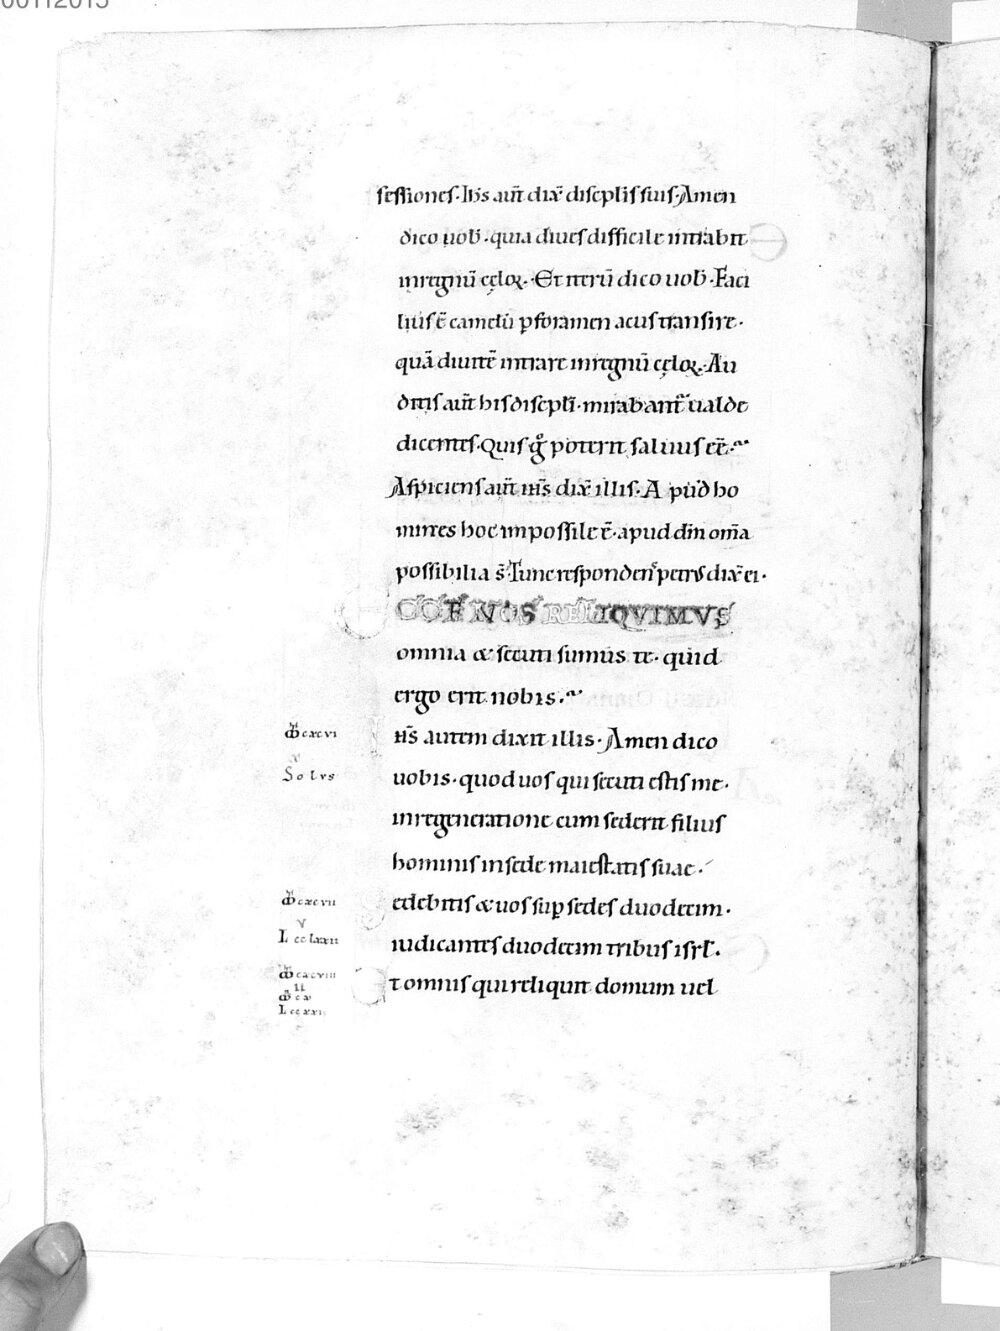 00112013
sessiones. Ihs aut̄ dix̄ discplis suis. Amen
dico uob̄. quia diues difficile intrabit
inregnū cęloꝝ. Et iterū dico uob̄. Faci
lius ē camelū ꝑforamen acus transire.
quā diuitē intrare inregnū cęloꝝ. Au
ditis aut̄ his discpli. mirabant᷑ ualde
dicentes. Quis gͦ poterit saluus eē.
Aspiciens aut̄ ihs̄ dix̄ illis. Apud ho
mines hoc impossile ē. apud dm̄ om̄a
possibilia s̄. Tunc respondens petrus dix̄ ei.
ECCE NOS RELIQVIMVS
omnia & secuti sumus te. quid
ergo erit nobis.
ihs̄ autem dixit illis. Amen dico
uobis. quod uos qui secuti estis me.
inregeneratione cum sederit filius
hominis insede maiestatis suae.
Sedebitis & uos suꝑ sedes duodecim.
iudicantes duodecim tribus isrł.
Et omnis qui reliquit domum uel
cxcvi
x
Solus
cxcvii
v
L cclxxii
cxcviii
ii